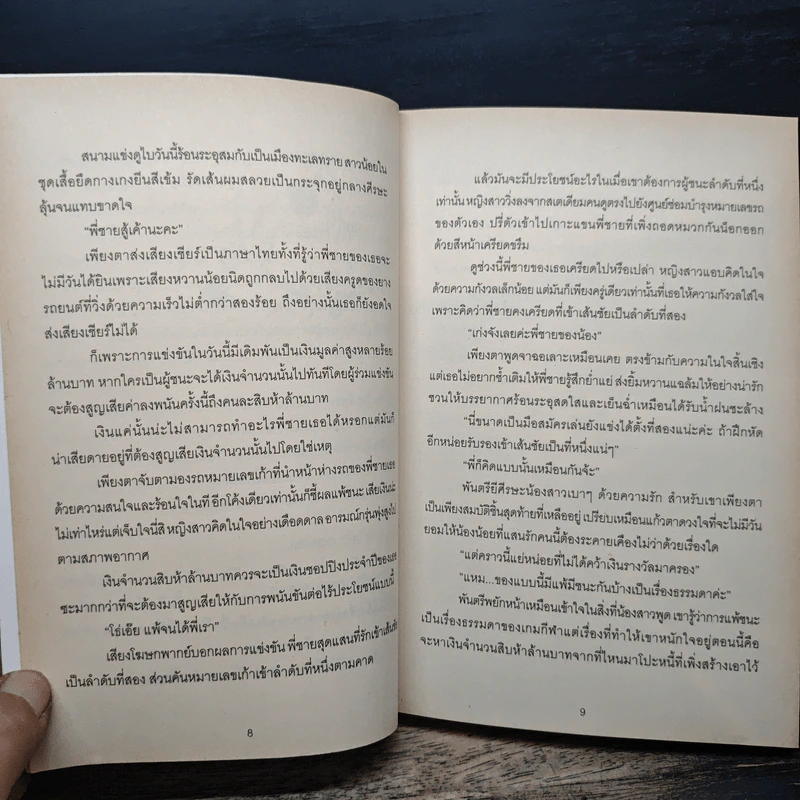 สนามแข่งดูไบวันนี้ร้อนระอุสมกับเป็นเมืองทะเลทราย สาวน้อยใน
ชุดเสื้อยืดกางเกงยีนสีเข้ม รัดเส้นผมสลวยเป็นกระจุกอยู่กลางศีรษะ
ลุ้นจนแทบขาดใจ
“พี่ชายสู้เค้านะคะ”
เพียงตาส่งเสียงเชียร์เป็นภาษาไทยทั้งที่รู้ว่าพี่ชายของเธอจะ
ไม่มีวันได้ยินเพราะเสียงหวานน้อยนิดถูกกลบไปด้วยเสียงครูดของยาง
รถยนต์ที่วิ่งด้วยความเร็วไม่ต่ำกว่าสองร้อย ถึงอย่างนั้นเธอก็ยังอดใจ
ส่งเสียงเชียร์ไม่ได้
ก็เพราะการแข่งขันในวันนี้มีเดิมพันเป็นเงินมูลค่าสูงหลายร้อย
ล้านบาท หากใครเป็นผู้ชนะจะได้เงินจำนวนนั้นไปทันทีโดยผู้ร่วมแข่งขัน
จะต้องสูญเสียค่าลงพนันครั้งนี้ถึงคนละสิบห้าล้านบาท
เงินแค่นั้นน่ะไม่สามารถทำอะไรพี่ชายเธอได้หรอกแต่มันก็
น่าเสียดายอยู่ที่ต้องสูญเสียเงินจำนวนนั้นไปโดยใช่เหตุ
เพียงตาจับตามองรถหมายเลขเก้าที่นำหน้าห่างรถของพี่ชายเธอ
ด้วยความสนใจและร้อนใจในที อีกโค้งเดียวเท่านั้นก็ชี้ผลแพ้ชนะ เสียเงินน่ะ
ไม่เท่าไหร่แต่เจ็บใจนี่สิ หญิงสาวคิดในใจอย่างเดือดดาล อารมณ์กรุ่นพุ่งสูงไป
ตามสภาพอากาศ
เงินจำนวนสิบห้าล้านบาทควรจะเป็นเงินชอปปิงประจำปีของเธอ
ซะมากกว่าที่จะต้องมาสูญเสียให้กับการพนันขันต่อไร้ประโยชน์แบบนี้
“โธ่เอ๊ย แพ้จนได้พี่เรา”
เสียงโฆษกพากย์บอกผลการแข่งขัน พี่ชายสุดแสนที่รักเข้าเส้นชัย
เป็นลำดับที่สอง ส่วนคันหมายเลขเก้าเข้าลำดับที่หนึ่งตามคาด
8
แล้วมันจะมีประโยชน์อะไรในเมื่อเขาต้องการผู้ชนะลำดับที่หนึ่ง
เท่านั้น หญิงสาววิ่งลงจากสเตเดียมคนดูตรงไปยังศูนย์ซ่อมบำรุงหมายเลขรถ
ของตัวเอง ปรี่ตัวเข้าไปเกาะแขนพี่ชายที่เพิ่งถอดหมวกกันน็อกออก
ด้วยสีหน้าเครียดขรึม
ดูช่วงนี้พี่ชายของเธอเครียดไปหรือเปล่า หญิงสาวแอบคิดในใจ
ด้วยความกังวลเล็กน้อย แต่มันก็เพียงครู่เดียวเท่านั้นที่เธอให้ความกังวลใส่ใจ
เพราะคิดว่าพี่ชายคงเครียดที่เข้าเส้นชัยเป็นลำดับที่สอง
“เก่งจังเลยค่ะพี่ชายของน้อง”
เพียงตาพูดจาฉอเลาะเหมือนเคย ตรงข้ามกับความในใจสิ้นเชิง
แต่เธอไม่อยากซ้ำเติมให้พี่ชายรู้สึกย่ำแย่ ส่งยิ้มหวานแฉล้มให้อย่างน่ารัก
ชวนให้บรรยากาศร้อนระอุสดใสและเย็นฉ่ำเหมือนได้รับน้ำฝนชะล้าง
“นี่ขนาดเป็นมือสมัครเล่นยังแข่งได้ตั้งที่สองแน่ะค่ะ ถ้าฝึกหัด
อีกหน่อยรับรองเข้าเส้นชัยเป็นที่หนึ่งแน่ๆ”
“พี่ก็คิดแบบนั้นเหมือนกันจ้ะ”
พันตรียีศีรษะน้องสาวเบาๆ ด้วยความรัก สำหรับเขาเพียงตา
เป็นเพียงสมบัติชิ้นสุดท้ายที่เหลืออยู่ เปรียบเหมือนแก้วตาดวงใจที่จะไม่มีวัน
ยอมให้น้องน้อยที่แสนรักคนนี้ต้องระคายเคืองไม่ว่าด้วยเรื่องใด
“แต่คราวนี้แย่หน่อยที่ไม่ได้คว้าเงินรางวัลมาครอง”
“แหม...ของแบบนี้มีแพ้มีชนะกันบ้างเป็นเรื่องธรรมดาค่ะ”
พันตรีพยักหน้าเหมือนเข้าใจในสิ่งที่น้องสาวพูด เขารู้ว่าการแพ้ชนะ
เป็นเรื่องธรรมดาของเกมกีฬาแต่เรื่องที่ทำให้เขาหนักใจอยู่ตอนนี้คือ
จะหาเงินจำนวนสิบห้าล้านบาทจากที่ไหนมาโปะหนี้ที่เพิ่งสร้างเอาไว้
9